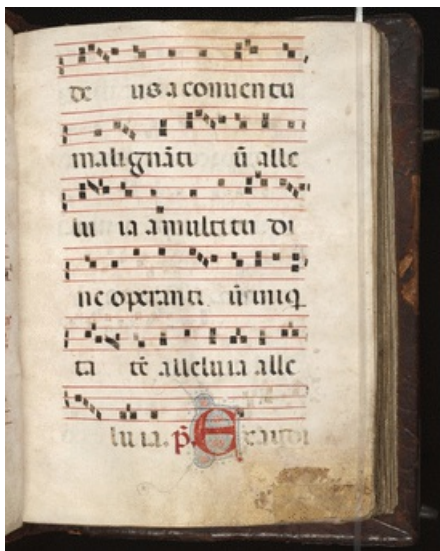 de us a conuentu
malignãti ũ alle
lu ia a multitu di
ne operanti ũ iniq
ta tẽ alleluia alle
lu ia. p̃. Exaudi